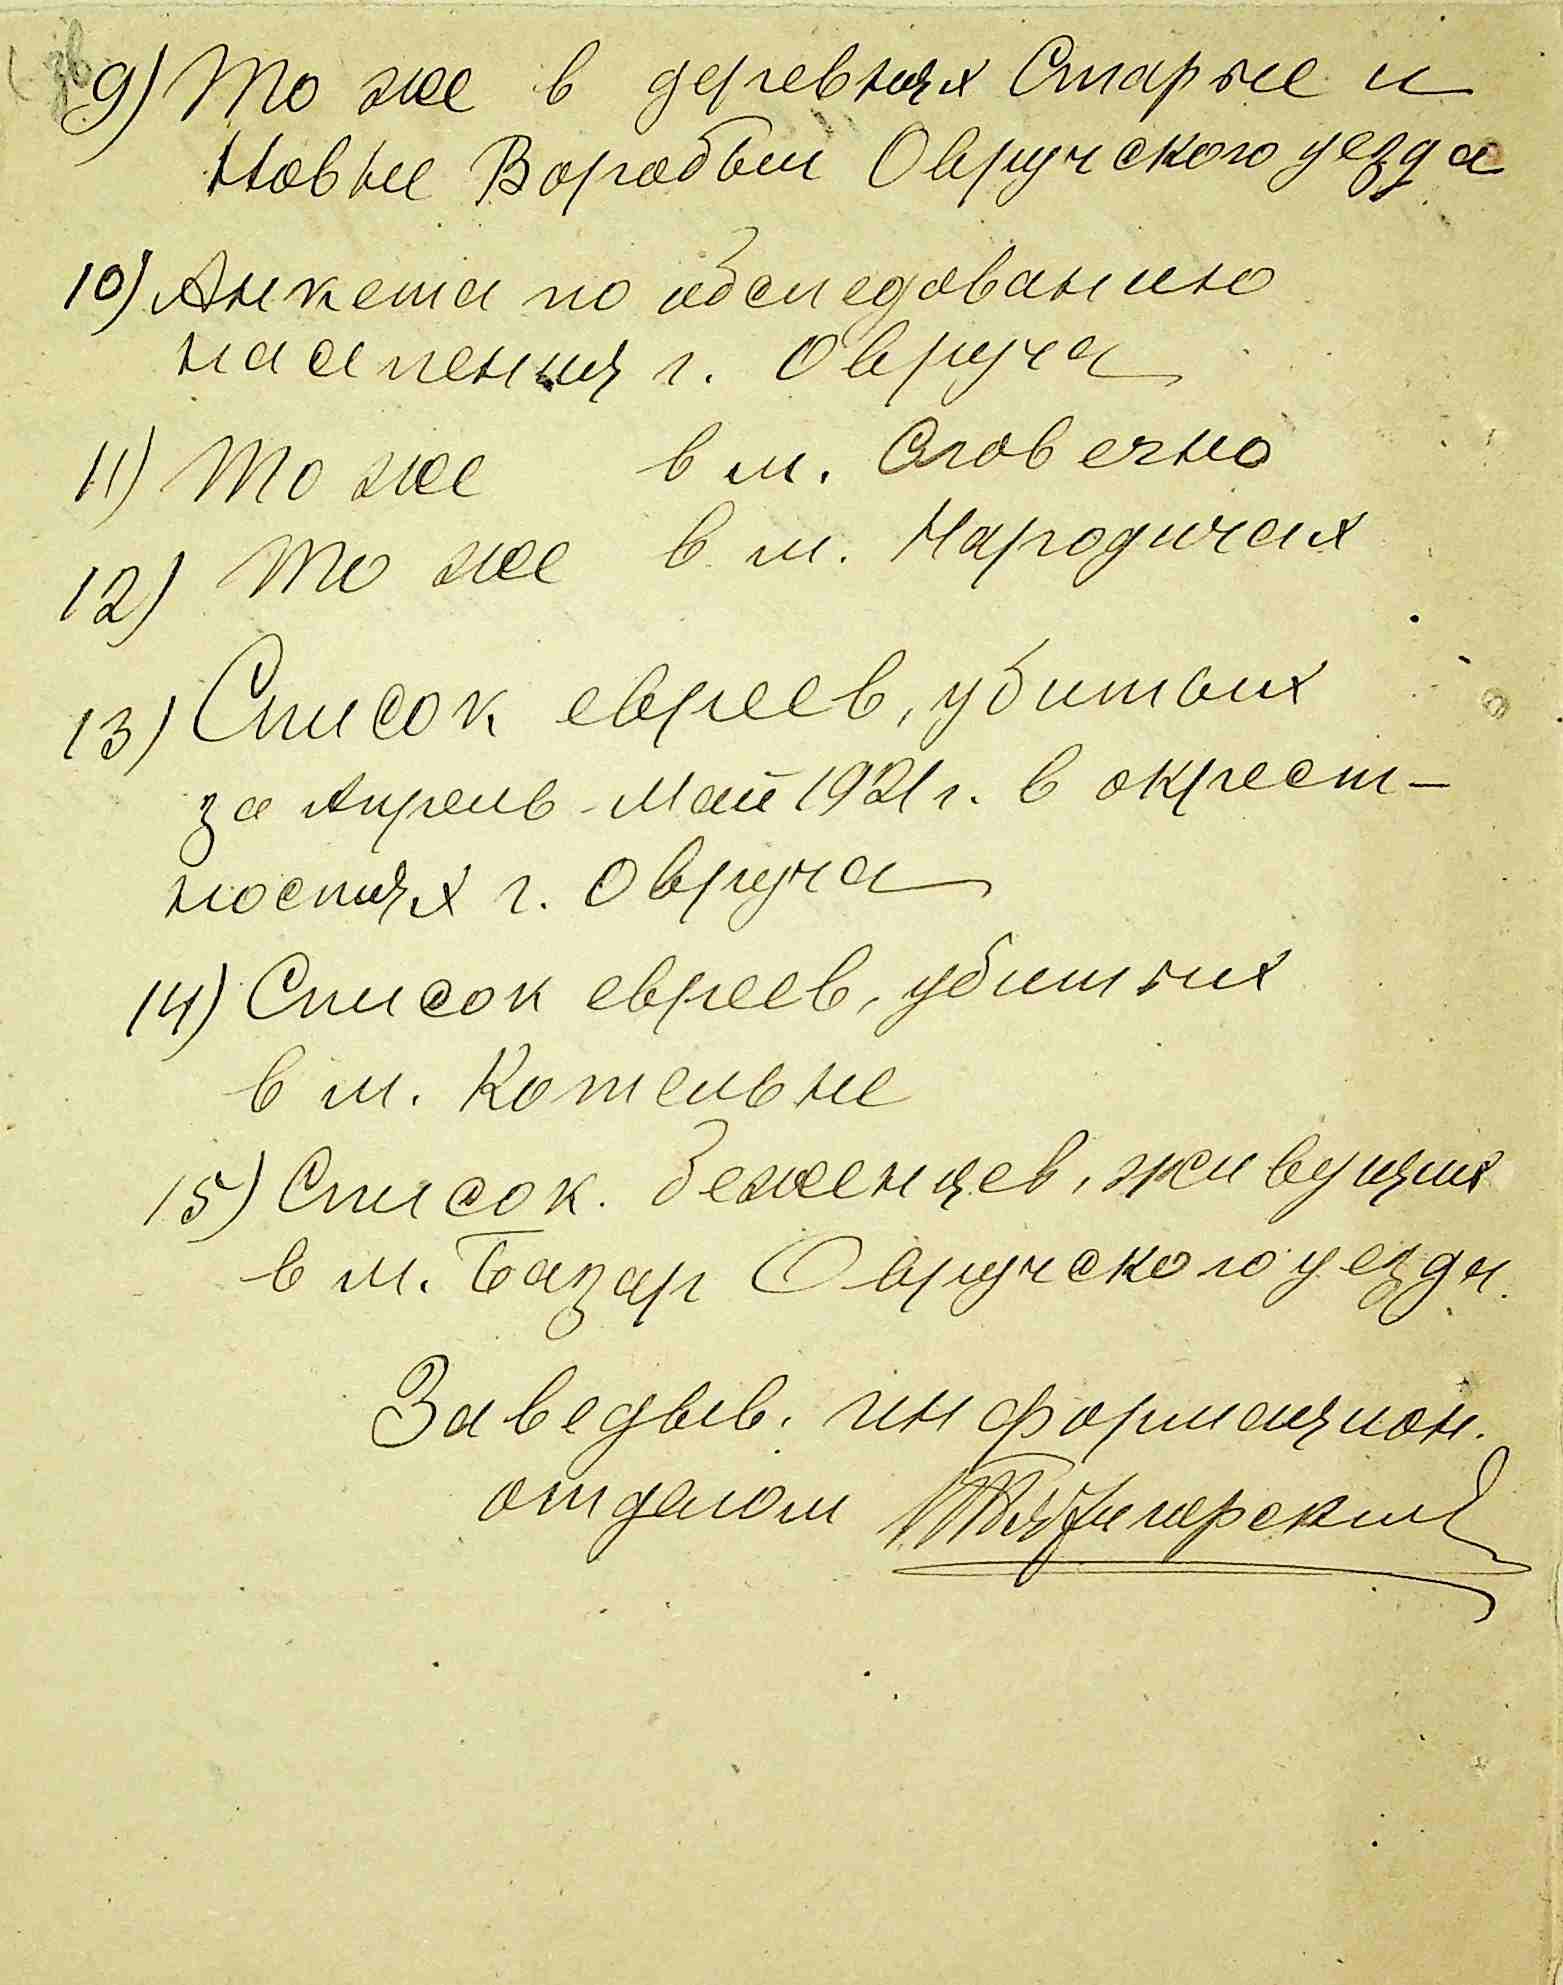 9) То же в деревнях Старые и
Новые Воробьи Овручского уезда
10) Анкета по обследованию
населения г. Овруча
11) То же в м. Словечно
12) То же в м. Народичах
13) Список евреев, убитых
за Апрель-Май 1921 г. в окрест-
ностях г. Овруча
14) Список евреев, убитых
в м. Котельне
15) Список беженцев, живущих
в м. Базар Овручского уезда.
Заведыв. информацион.
отделом